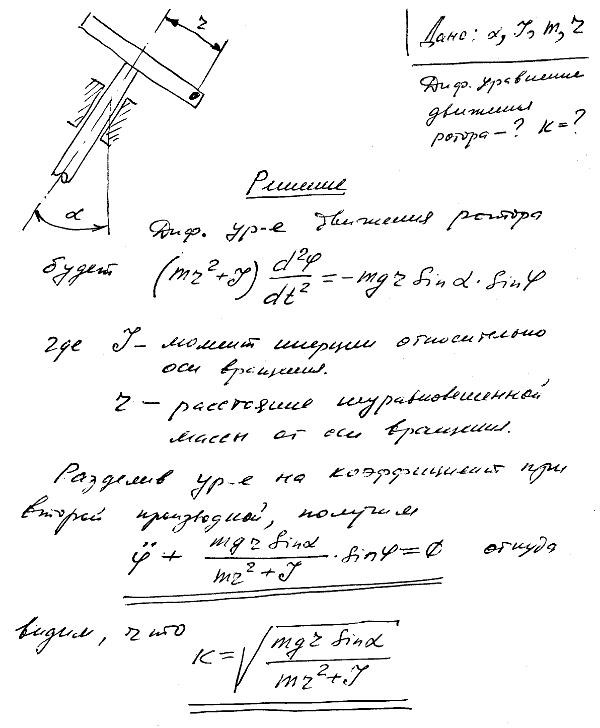 r
Дано: α, J, m, r
Диф. уравнение
движения
ротора - ? K = ?
α
Решение
Диф. ур-е движения ротора
будет (mr²+J) d²φ/dt² = -mgr Sinα · Sinφ
где J - момент инерции относительно
оси вращения.
r - расстояние неуравновешенной
массы от оси вращения.
Разделив ур-е на коэффициент при
второй производной, получим
φ̈ + mgr Sinα / (mr² + J) · sinφ = 0 откуда
видим, что
K = √(mgr Sinα / (mr² + J))